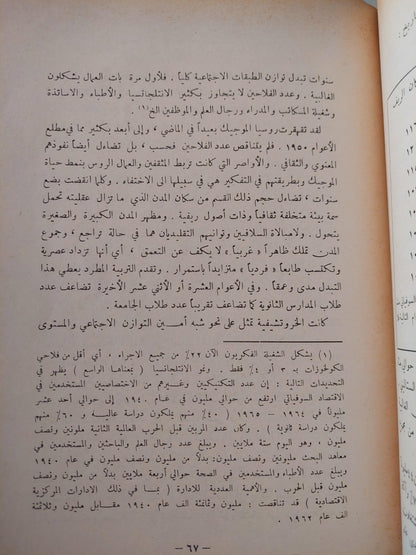 سنوات تبدل توازن الطبقات الاجتماعية كلياً . فلأول مرة بات العمال يشكلون
الغالبية . وعدد الفلاحين لا يتجاوز بكثير الانتلجانسيا والأطباء والاساتذة
وشغيلة المكاتب والمدراء ورجال العلم والموظفين الخ(١) .
لقد تقهقرت روسيا الموجيك بعيداً في الماضي ، وإلى أبعد بكثير مما في مطلع
الأعوام ١٩٥٠ . لم يتناقص عدد الفلاحين فحسب ، بل تضاءل أيضاً نفوذهم
المعنوي والثقافي . والأواصر التي كانت تربط المثقفين والعمال الروس بنمط حياة
الموجيك وبطريقتهم في التفكير هي في سبيلها الى الاختفاء . وكلما انقضت بضع
سنوات ، تضاءل حجم ذلك القسم من سكان المدن الذي ما تزال عقليته تحمل
سمة بيئة متخلفة ثقافياً وذات أصول ريفية . ومظهر المدن الكبيرة والصغيرة
يتحول . ولامبالاة السلافيين وتوانيهم التقليديان هما في حالة تراجع ، وجموع
المدن تملك ظاهراً « غربياً » لا يكف عن التعمق ، أي أنها تزداد عصرية
وتكتسب طابعاً « فردياً » متزايداً باستمرار . وتقدم التربية المطرد يعطي هذا
التبدل مدى وعمقاً . وفي الأعوام العشرة أو الاثني عشر الأخيرة تضاعف عدد
طلاب المدارس الثانوية كما تضاعف تقريباً عدد طلاب الجامعة .
كانت الخروتشيفية تمثل على نحو شبه أمين التوازن الاجتماعي والمستوى
(١) يشكل الشغيلة الفكريون الآن ٢٢٪ من جميع الاجراء . أي أقل من فلاحي
الكولخوزات بـ ٣ أو ٤٪ فقط . ونمو الانتلجانسيا ( بمعناها الواسع ) يظهر في
التحديدات التالية : إن عدد التكنيكيين وغيرهم من الاختصاصيين المستخدمين في
الاقتصاد السوفياتي ارتفع من حوالي مليون في عام ١٩٤٠ إلى حوالي أحد عشر
مليوناً في ١٩٦٤ – ١٩٦٥ ( ٤٠٪ منهم يملكون دراسة عالية و ٦٠٪ منهم
يملكون دراسة ثانوية ) . وكان عدد المربين قبل الحرب العالمية الثانية مليونين ونصف
مليون ، وهو اليوم ستة ملايين . ويبلغ عدد رجال العلم والباحثين والمستخدمين في
معاهد البحث مليونين ونصف مليون: بدلاً من مليون ونصف مليون في عام ١٩٤٠
ويبلغ عدد الأطباء والمستخدمين في الصحة حوالي أربعة ملايين بدلاً من مليون ونصف
مليون قبل الحرب . والأهمية العددية للإدارة ( بما في ذلك الادارات المركزية
الاقتصادية ) قد تناقصت : مليون وثمانمئة الف عام ١٩٤٠ مقابل مليون وثلاثمئة
الف عام ١٩٦٢ .
– ٦٧ –